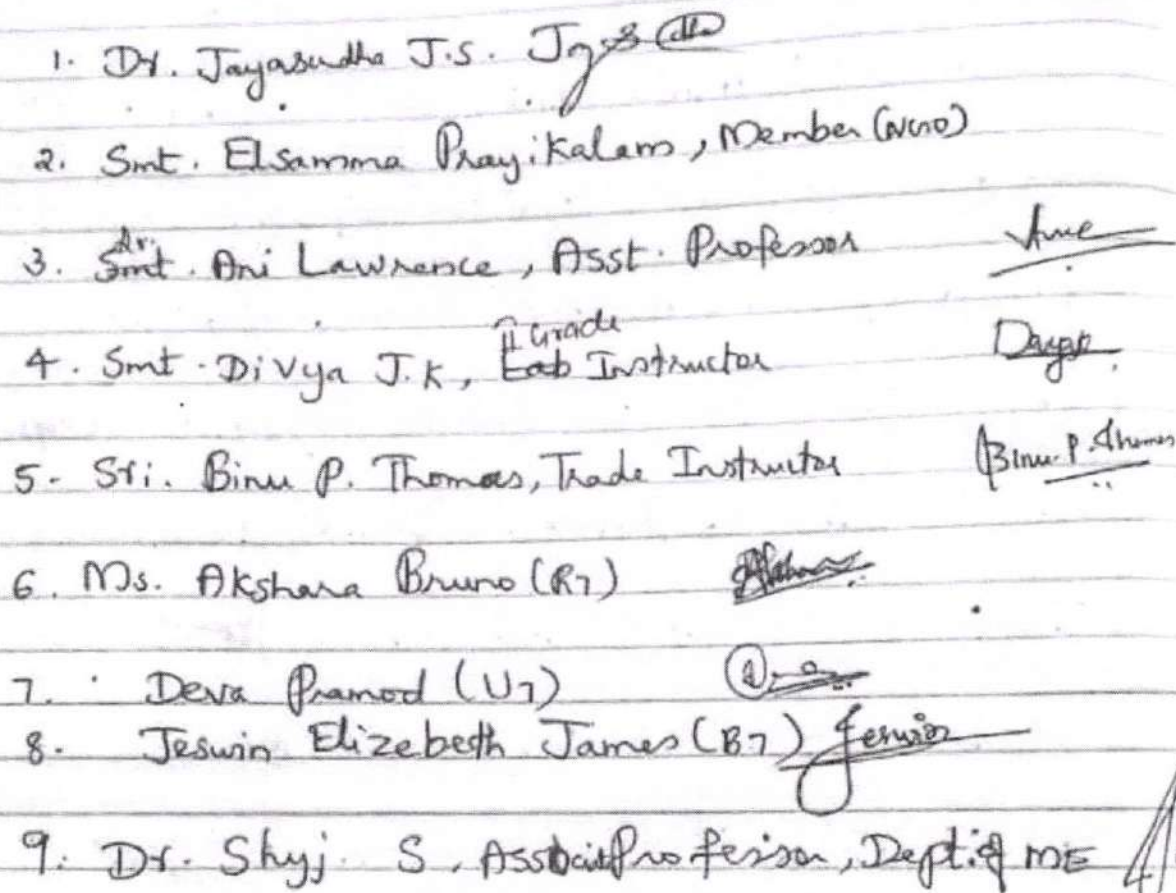 1. Dr. Jayasudha J.S.
2. Smt. Elsamma Prayikalam, Member (NGO)
3. Dr. Smt. Ani Lawrence, Asst. Professor
4. Smt. Divya J.K, II Grade Lab Instructor
5. Sri. Binu P. Thomas, Trade Instructor Binu. P. Thomas
6. Ms. Akshara Bruno (R7)
7. Deva Pramod (U7)
8. Jeswin Elizebeth James (B7) Jeswin
9. Dr. Shyj. S, Professor, Dept. of ME